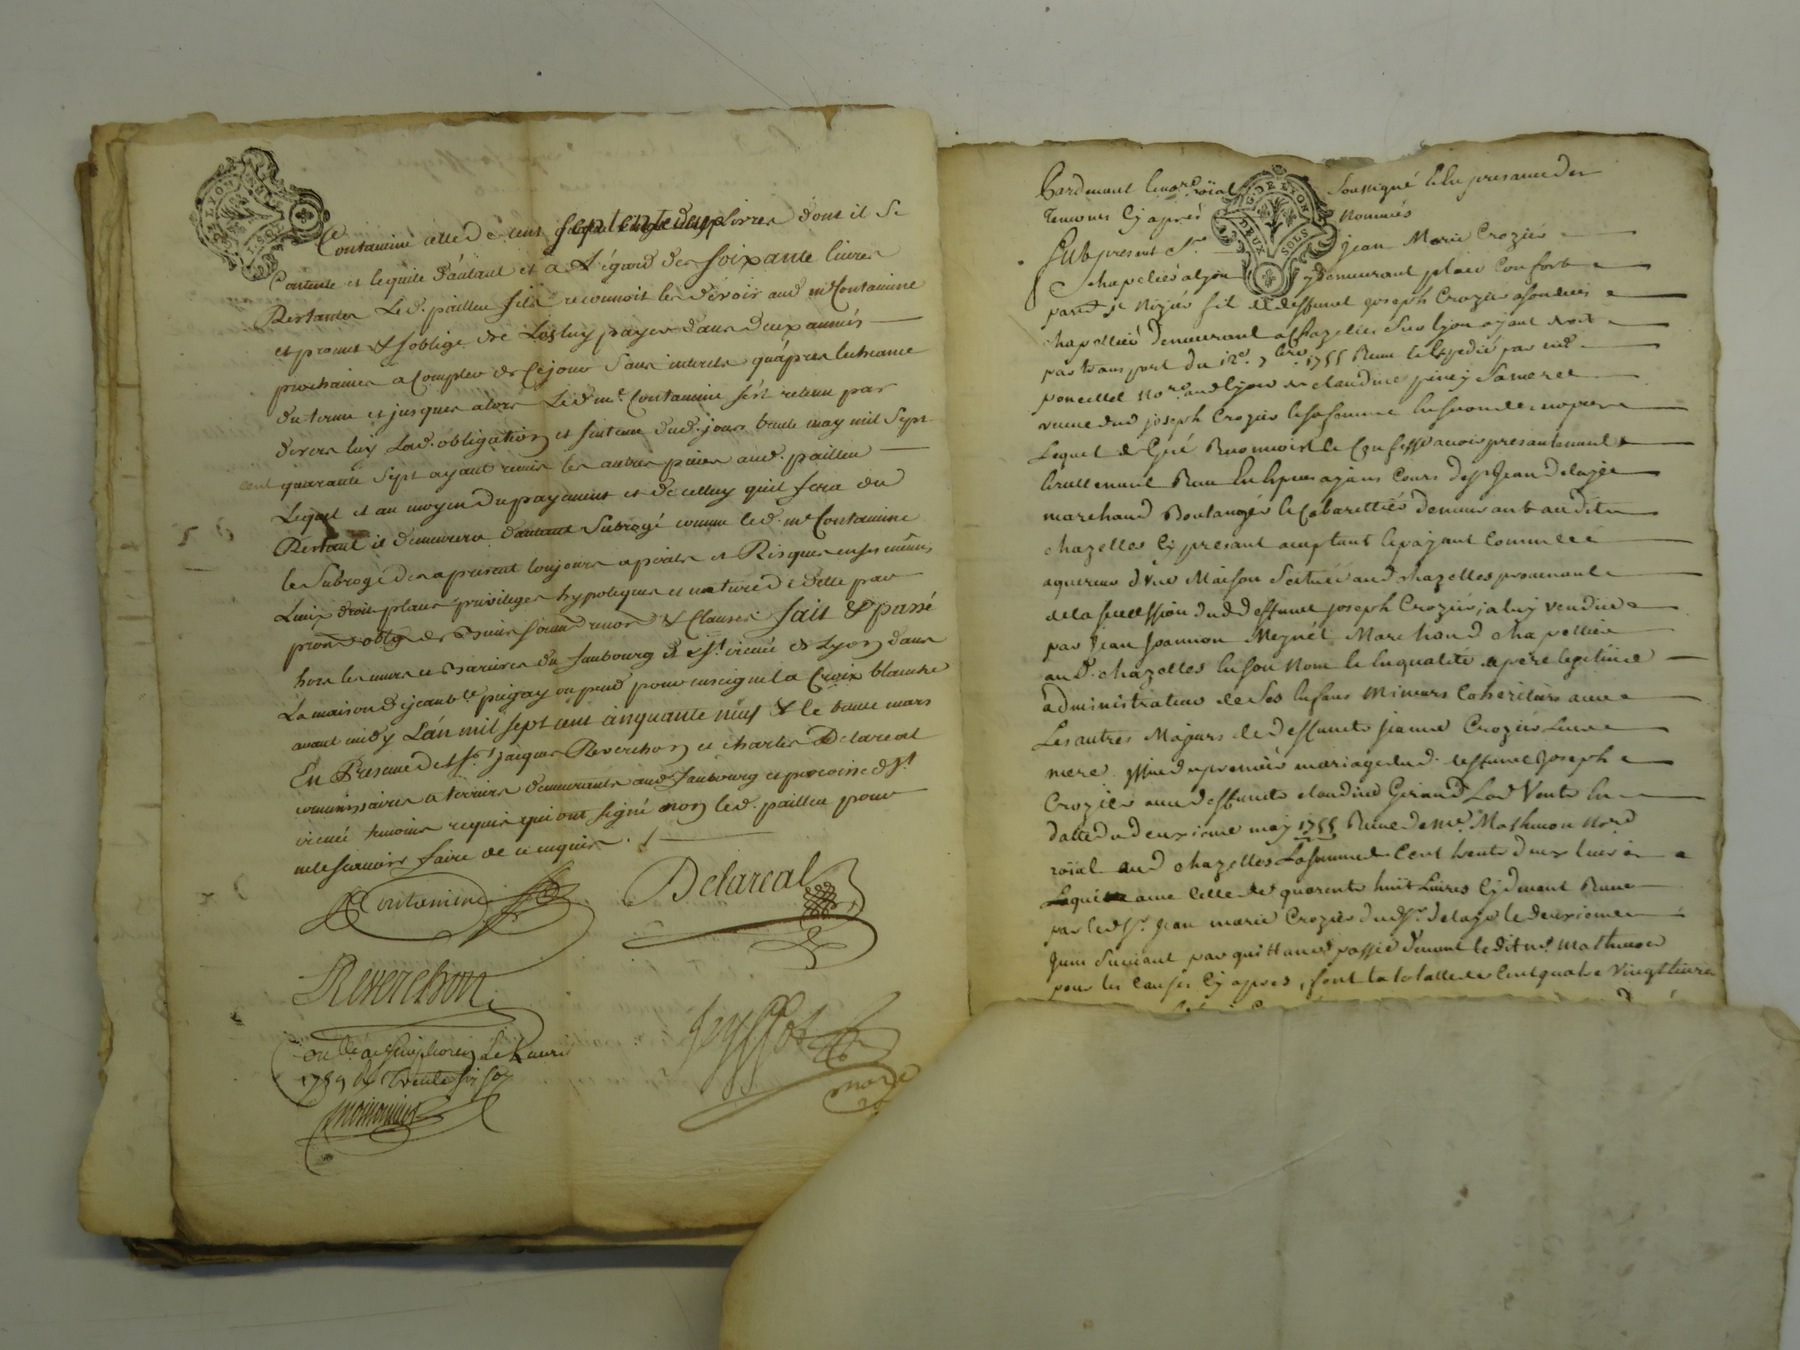 LYON
Contamine celle de cent septente deux livres dont il se
Contente et le quite d'autant et a L'égard des soixante livres
Restantes Led. paillen fils reconnoit les devoir aud. mr Contamine
et promet & s'oblige de Les luy payer dans deux années
prochaines a Compter de Cejour Sans interets qu'apres lecheance
du terme et jusques alors Led. mr. Contamine s'est retenu par
devers luy Lad. obligation et sentence dud. jour trente may mil Sept
cent quarante Sept ayant remis les autres pieces aud. paillen
Lequel et au moyen du payement et de celluy qu'il fera du
Restant il demeurera d'autant Subrogé comme led. mr Contamine
le Subroge des apresent toujours a perils et Risques en ses mêmes
Lieux droits places privileges hypoteques et nature de dette par
prom. oblig. de biens soum. renon. & Clauses fait & passé
hors les murs et Barrieres du faubourg de St. irenée de Lyon dans
La maison de jean bte. pugay ou pend pour enseigne la Croix blanche
avant midy L'an mil sept cent cinquante neuf & le trente mars
En Presence de Srs. jacques Reverchon et charles Delareal
commissaires a terriers demeurants aud. faubourg et paroisse de St.
irenée temoins requis qui ont signé non led. paillen pour
ne le scavoir faire de ce enquis
Contamine
Delareal
Reverchon
Le 2 avril
1759 Trente six sols
Pardevant le nore. roïal Soussigné & En presance des
Temoins Cy aprés Nommés
G. DE LYON DEUX SOLS
Fut present Sr. Jean Marie Crozier
chapelier a lyon y demeurant place Confort
parse. St Nizier fils de deffunt joseph Crozier a son decés
chapellier demeurant a Chazelles sur lyon ayant droit
par transport du 12e. 7bre 1755 Reçu & Expedié par me.
poncellet nore. aud lyon de claudine piney sa mere
veuve dud joseph Crozier & sa femme en secondes nopces
Lequel de Gré Reconnoist & Confesse avoir presantement
& réellement Reçu En Especes ayans Cours de Sr Jean Delaye
marchand Boulanger & Cabarettier demeurant audit
chazelles Cy presant acceptant & payant Comme
aquereur d'une Maison Scituée aud chazelles provenant
de la succession dud deffunt joseph Crozier, a luy vendue
par Jean Joannon Meynét Marchand chapellier
aud. chazelles En son Nom & En qualité de pere legitime
administrateur de Ses Enfans Mineurs Coheritiers avec
Les autres Majeurs de deffunte jeanne Crozier Leur
mere issue du premier mariage dud. deffunt Joseph
Crozier avec deffunte claudine Girand Lad Vente En
datte du deuxième may 1755 Reçue de Me. Mathevon Nore
roïal aud chazelles La somme de Cent trente deux livres
Laquelle avec Celle de quarante huit Livres Cy devant Recue
par led Sr. Jean marie Crozier dud Sr. delaye le deuxieme
Juin Suivant par quittance passée devant ledit me. Mathevon
pour les Causes Cy apres, font la totalle de Cent quatre Vingt livres